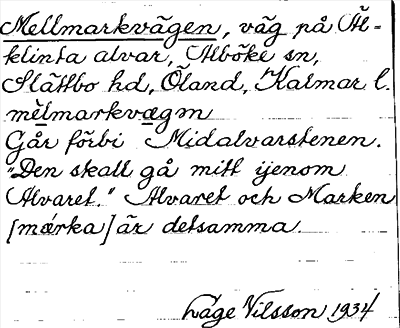 Mellmarkvägen, väg på Äl-
klinta alvar, Alböke sn,
Slättbo hd, Öland, Kalmar l.
mèlmarkvægən
Går förbi Midalvarstenen.
"Den skall gå mitt ijenom
Alvaret." Alvaret och Marken
[márka] är detsamma.
Låge Nilsson 1934